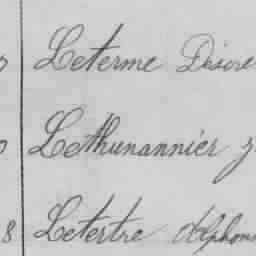 Leterme Désiré
Lethunannier
8 Letertre Alphons